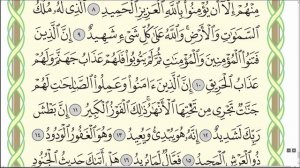 مِنْهُمْ إِلَّآ أَن يُؤْمِنُوا۟ بِٱللَّهِ ٱلْعَزِيزِ ٱلْحَمِيدِ ٨ ٱلَّذِى لَهُۥ مُلْكُ
ٱلسَّمَـٰوَٰتِ وَٱلْأَرْضِ وَٱللَّهُ عَلَىٰ كُلِّ شَىْءٍ شَهِيدٌ ٩ إِنَّ ٱلَّذِينَ
فَتَنُوا۟ ٱلْمُؤْمِنِينَ وَٱلْمُؤْمِنَـٰتِ ثُمَّ لَمْ يَتُوبُوا۟ فَلَهُمْ عَذَابُ جَهَنَّمَ وَلَهُمْ
عَذَابُ ٱلْحَرِيقِ ١٠ إِنَّ ٱلَّذِينَ ءَامَنُوا۟ وَعَمِلُوا۟ ٱلصَّـٰلِحَـٰتِ لَهُمْ
جَنَّـٰتٌ تَجْرِى مِن تَحْتِهَا ٱلْأَنْهَـٰرُ ذَٰلِكَ ٱلْفَوْزُ ٱلْكَبِيرُ ١١ إِنَّ بَطْشَ
رَبِّكَ لَشَدِيدٌ ١٢ إِنَّهُۥ هُوَ يُبْدِئُ وَيُعِيدُ ١٣ وَهُوَ ٱلْغَفُورُ ٱلْوَدُودُ ١٤
ذُو ٱلْعَرْشِ ٱلْمَجِيدُ ١٥ فَعَّالٌ لِّمَا يُرِيدُ ١٦ هَلْ أَتَىٰكَ حَدِيثُ ٱلْجُنُودِ